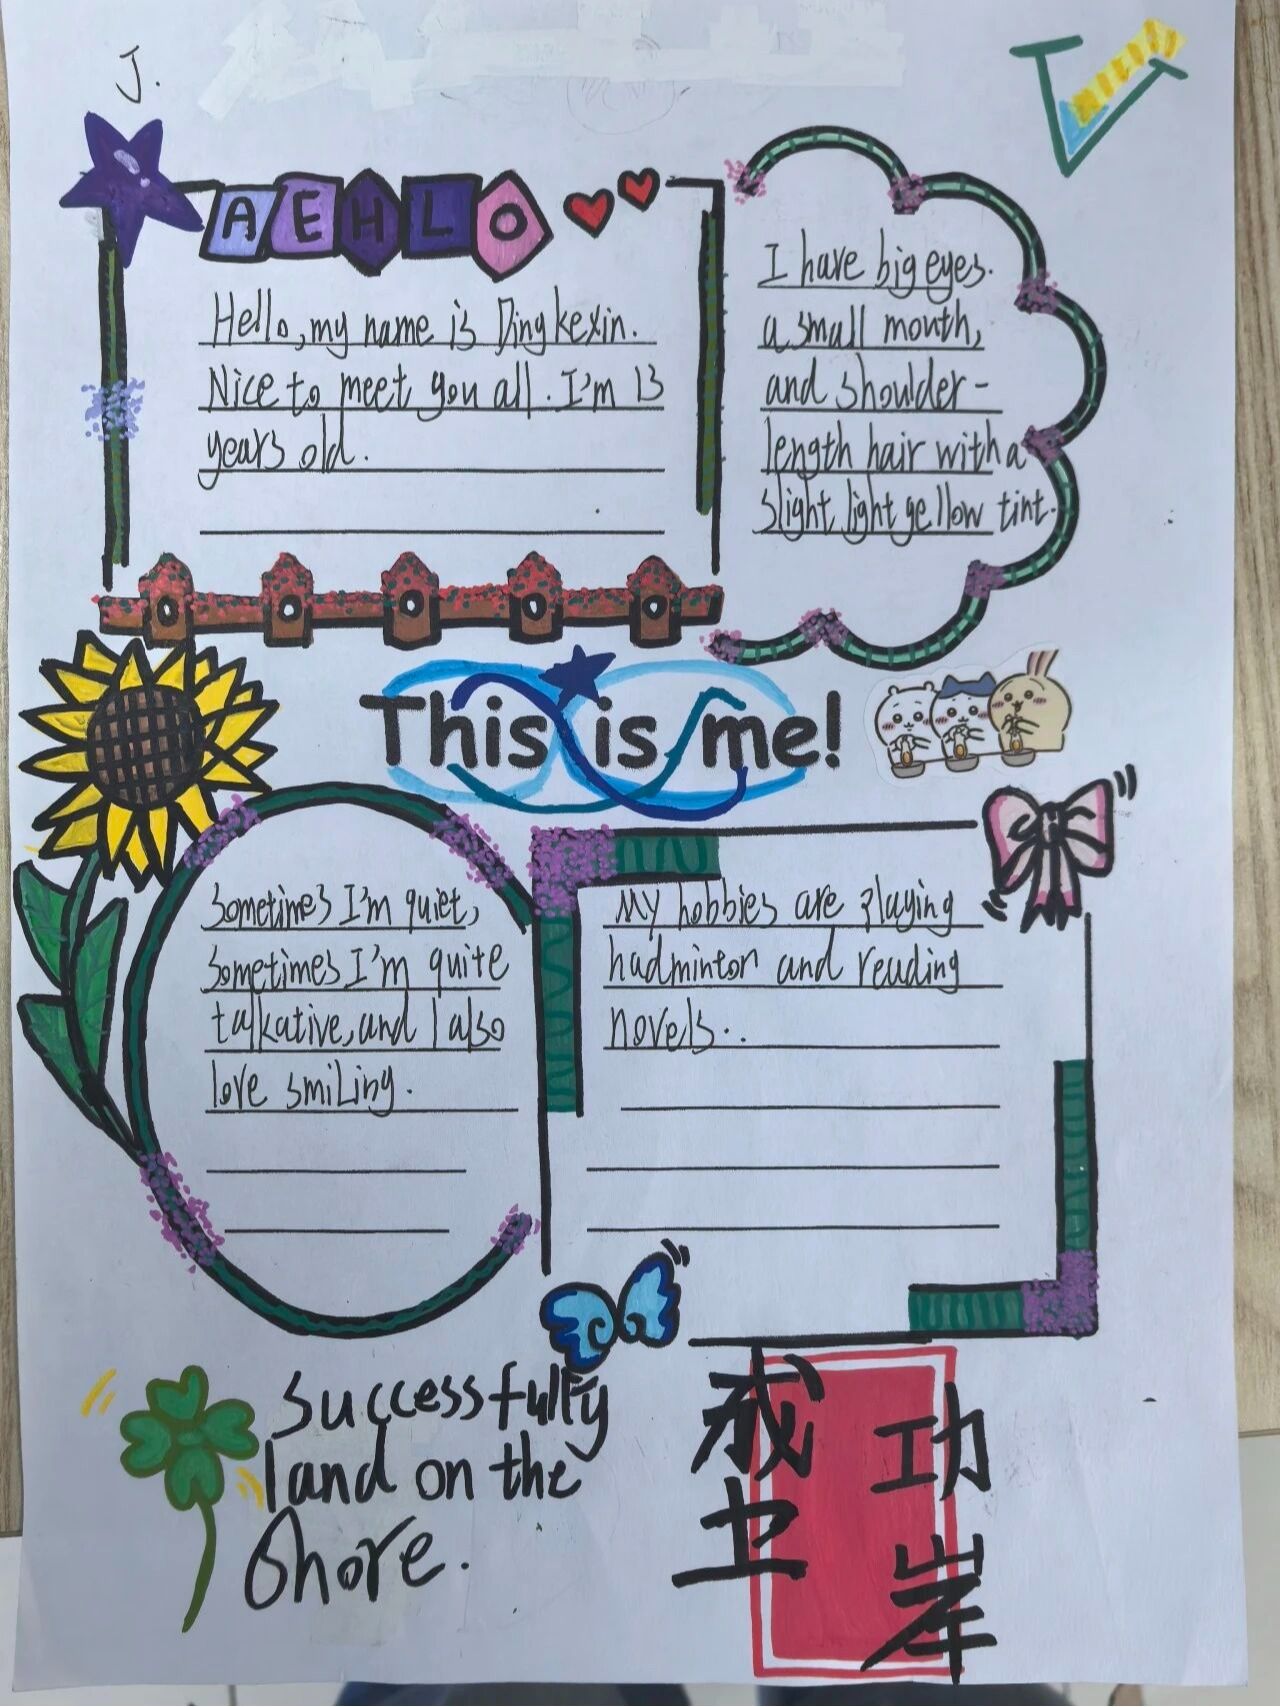 J.
AEHLO
Hello, my name is Ding kexin.
Nice to meet you all. I'm 13
years old.
I have big eyes.
a small mouth,
and shoulder-
length hair with a
slight light yellow tint.
This is me!
Sometimes I'm quiet,
sometimes I'm quite
talkative, and I also
love smiling.
My hobbies are playing
badminton and reading
novels.
Successfully
land on the
Shore.
成功
上岸